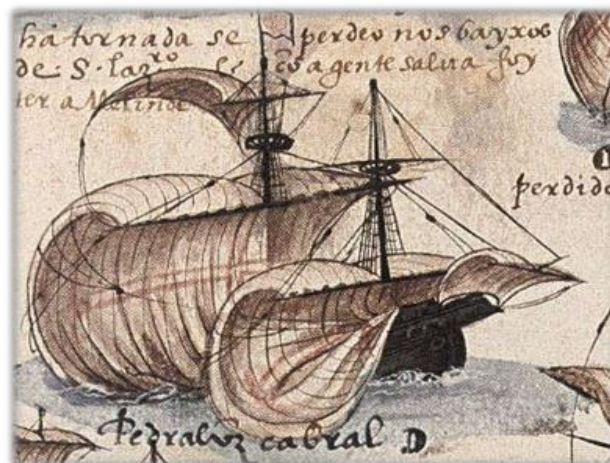 ha tornada se perdeo nos bayxos
de S. laz.ro
cõ a gente salva foy
ter a Melinde
perdido
Pedralvz cabral D